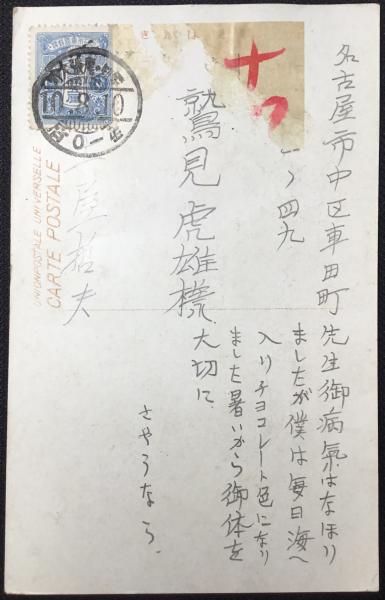 名古屋市中区車田町
一ノ四九
鷲見虎雄様
屋哲夫
先生御病氣はなほり
ましたが僕は毎日海へ
入りチヨコレート色になり
ました暑いから御体を
大切に
さやうなら.
UNION POSTALE UNIVERSELLE
CARTE POSTALE
10.8.10